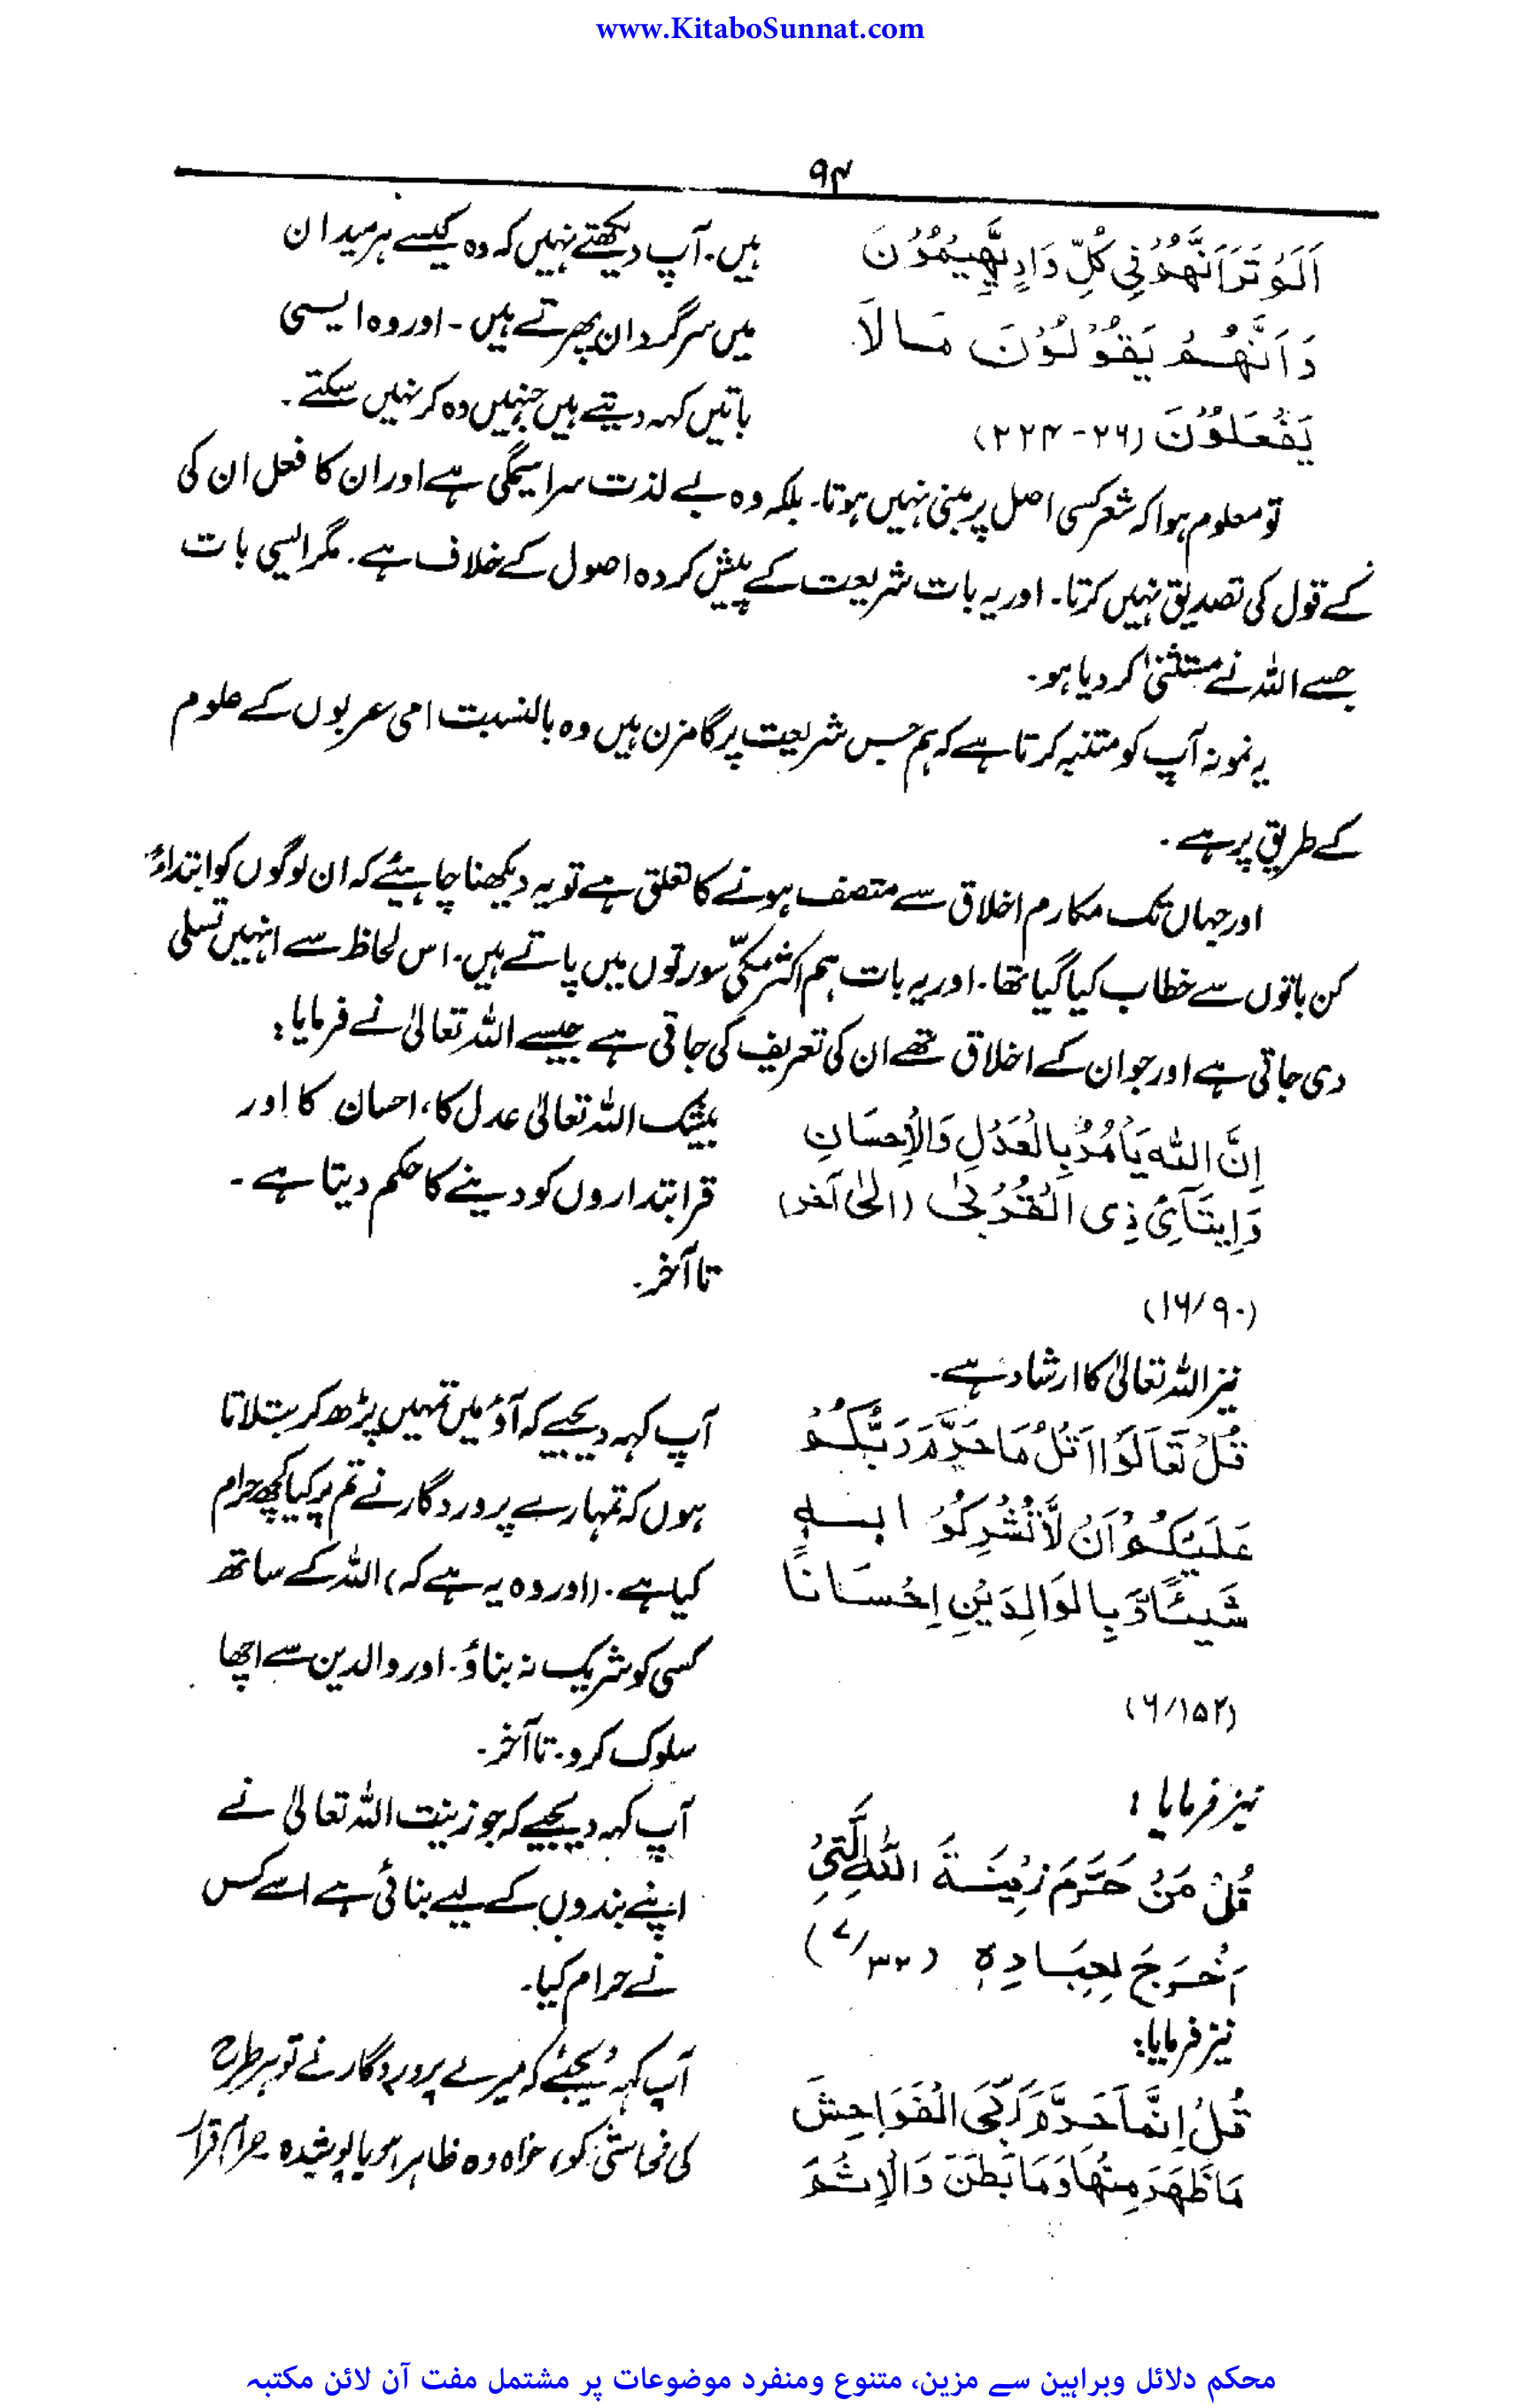 www.KitaboSunnat.com
۹۴
اَلَمْ تَرَ اَنَّهُمْ فِيْ كُلِّ وَادٍ يَّهِيْمُوْنَ
وَاَنَّهُمْ يَقُوْلُوْنَ مَا لَا
يَفْعَلُوْنَ (۲۶-۲۲۴)
ہیں۔ آپ دیکھتے نہیں کہ وہ کیسے ہر میدان
میں سرگرداں پھرتے ہیں۔ اور وہ ایسی
باتیں کہہ دیتے ہیں جنہیں وہ کر نہیں سکتے۔
تو معلوم ہوا کہ شعر کسی اصل پر مبنی نہیں ہوتا۔ بلکہ وہ بے لذت سراسیمگی ہے اور ان کا فعل ان کی
کے قول کی تصدیق نہیں کرتا۔ اور یہ بات شریعت کے پیش کردہ اصول کے خلاف ہے۔ مگر ایسی بات
جسے اللہ نے مستثنیٰ کر دیا ہو۔
یہ نمونہ آپ کو متنبہ کرتا ہے کہ ہم جس شریعت پر گامزن ہیں وہ بالنسبت امی عربوں کے علوم
کے طریق پر ہے۔
اور جہاں تک مکارم اخلاق سے متصف ہونے کا تعلق ہے تو یہ دیکھنا چاہیئے کہ ان لوگوں کو ابتداءً
کن باتوں سے خطاب کیا گیا تھا۔ اور یہ بات ہم اکثر مکیّ سورتوں میں پاتے ہیں۔ اس لحاظ سے انہیں تسلی
دی جاتی ہے اور جو ان کے اخلاق تھے ان کی تعریف کی جاتی ہے جیسے اللہ تعالیٰ نے فرمایا:
اِنَّ اللهَ يَاْمُرُ بِالْعَدْلِ وَالْاِحْسَانِ
وَاِيْتَآئِ ذِى الْقُرْبٰى (الیٰ آخر)
(۱۶/۹۰)
بیشک اللہ تعالیٰ عدل کا، احسان کا اور
قرابتداروں کو دینے کا حکم دیتا ہے۔
تا آخر۔
نیز اللہ تعالیٰ کا ارشاد ہے۔
قُلْ تَعَالَوْا اَتْلُ مَا حَرَّمَ رَبُّكُمْ
عَلَيْكُمْ اَنْ لَّا تُشْرِكُوْا بِهٖ
شَيْئًا وَّ بِالْوَالِدَيْنِ اِحْسَانًا
(۶/۱۵۲)
آپ کہہ دیجیے کہ آؤ میں تمہیں پڑھ کر بتلاتا
ہوں کہ تمہارے پروردگار نے تم پر کیا کچھ حرام
کیا ہے۔ (اور وہ یہ ہے کہ) اللہ کے ساتھ
کسی کو شریک نہ بناؤ۔ اور والدین سے اچھا
سلوک کرو۔ تا آخر۔
نیز فرمایا:
قُلْ مَنْ حَرَّمَ زِيْنَةَ اللّٰهِ الَّتِيْ
اَخْرَجَ لِعِبَادِهٖ (۷/۳۲)
آپ کہہ دیجیے کہ جو زینت اللہ تعالیٰ نے
اپنے بندوں کے لیے بنائی ہے اسے کس
نے حرام کیا۔
نیز فرمایا:
قُلْ اِنَّمَا حَرَّمَ رَبِّيَ الْفَوَاحِشَ
مَا ظَهَرَ مِنْهَا وَمَا بَطَنَ وَالْاِثْمَ
آپ کہہ دیجئے کہ میرے پروردگار نے تو ہر طرح
کی فحاشی کو، خواہ وہ ظاہر ہو یا پوشیدہ حرام قرار
محکم دلائل وبراہین سے مزین، متنوع ومنفرد موضوعات پر مشتمل مفت آن لائن مکتبہ